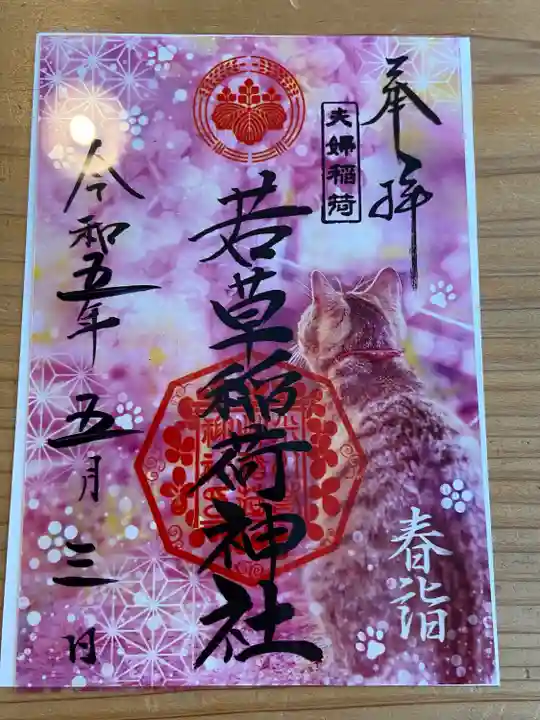 奉拝
夫婦稲荷
春詣
若草稲荷神社
令和五年五月三日